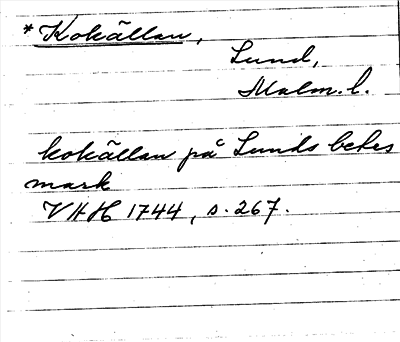 * Kokällan,
Lund,
Malm. l.
kokällan på Lunds
mark
VHH 1744, s. 267.